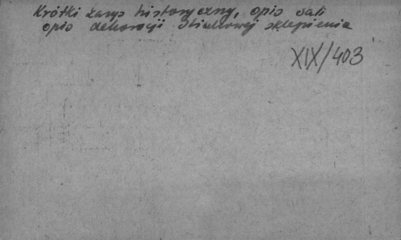 Krótki zarys historyczny, opis sali
opis dekoracji stiukowej sklepienia
XIX/403